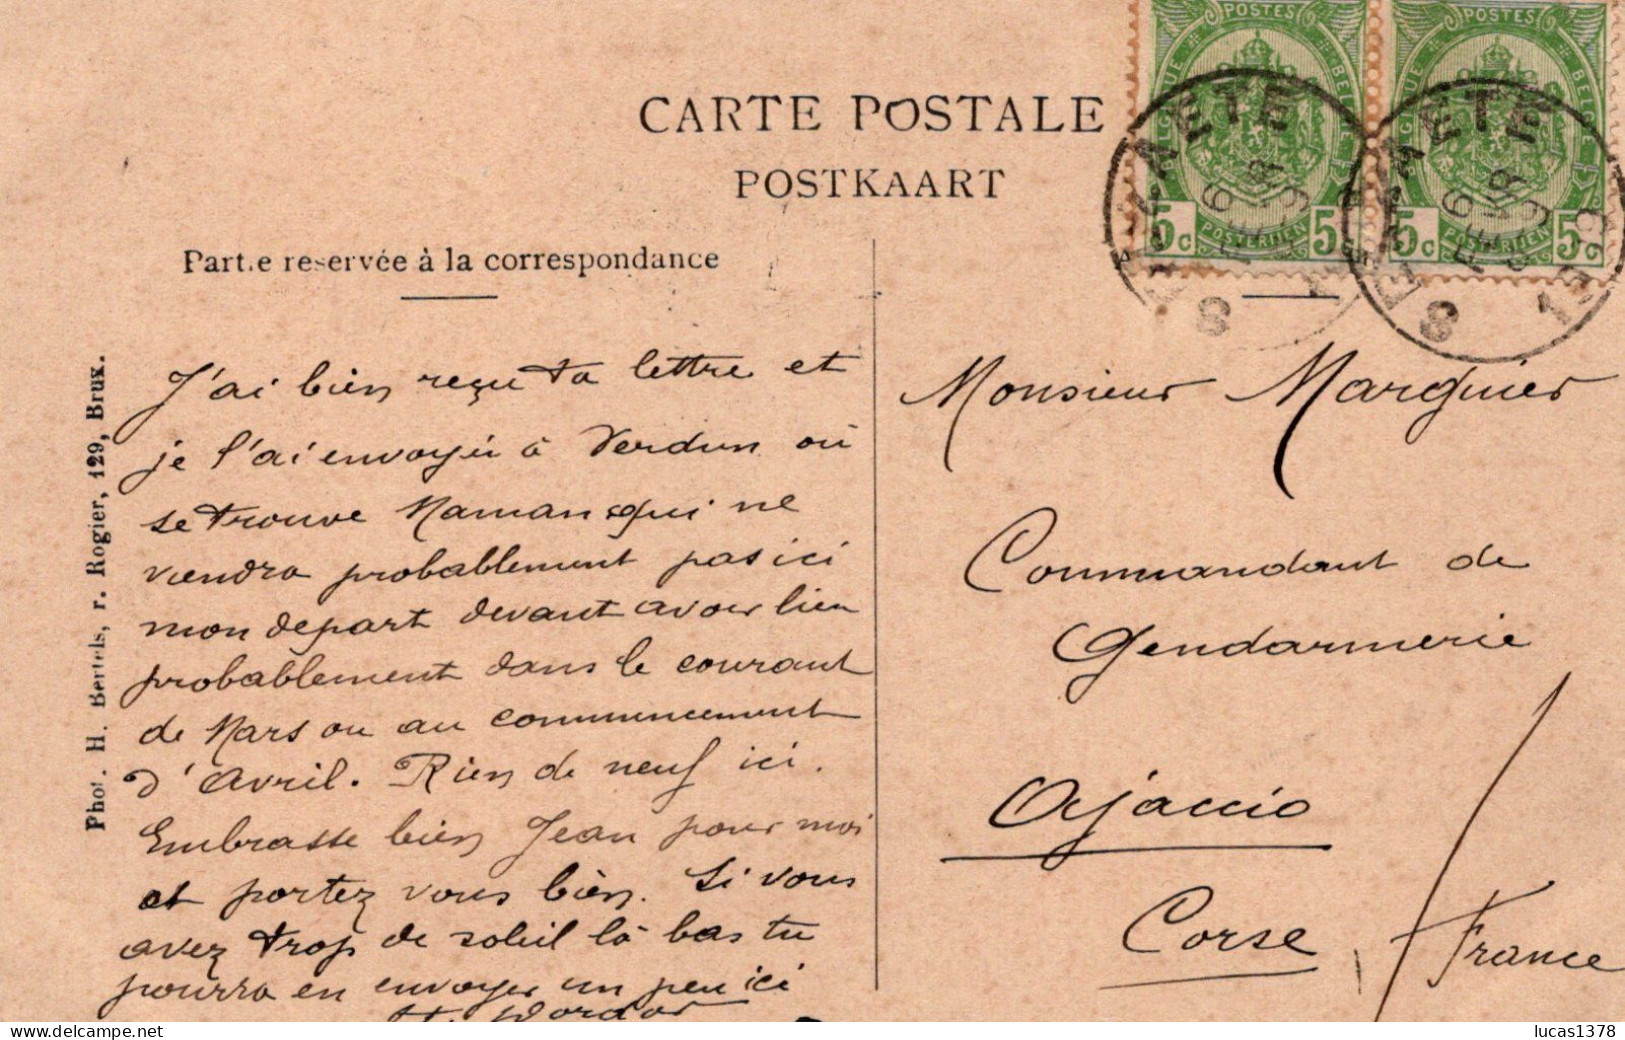 CARTE POSTALE
POSTKAART
Part.e reservée à la correspondance
POSTES
BELGIQUE BELGIE
5c POSTERIJEN 5c
POSTES
BELGIQUE BELGIE
5c POSTERIJEN 5c
Phot. H. Bertels, r. Rogier, 129, Brux.
J'ai bien reçu ta lettre et
je l'ai envoyée à Verdun où
se trouve Maman qui ne
viendra probablement pas ici
mon départ devant avoir lieu
probablement dans le courant
de Mars ou au commencement
d'Avril. Rien de neuf ici.
Embrasse bien Jean pour moi
et portez vous bien. Si vous
avez trop de soleil là bas tu
pourra en envoyer un peu ici
Monsieur Marguier
Commandant de
Gendarmerie
Ajaccio
Corse
France
lucas1378